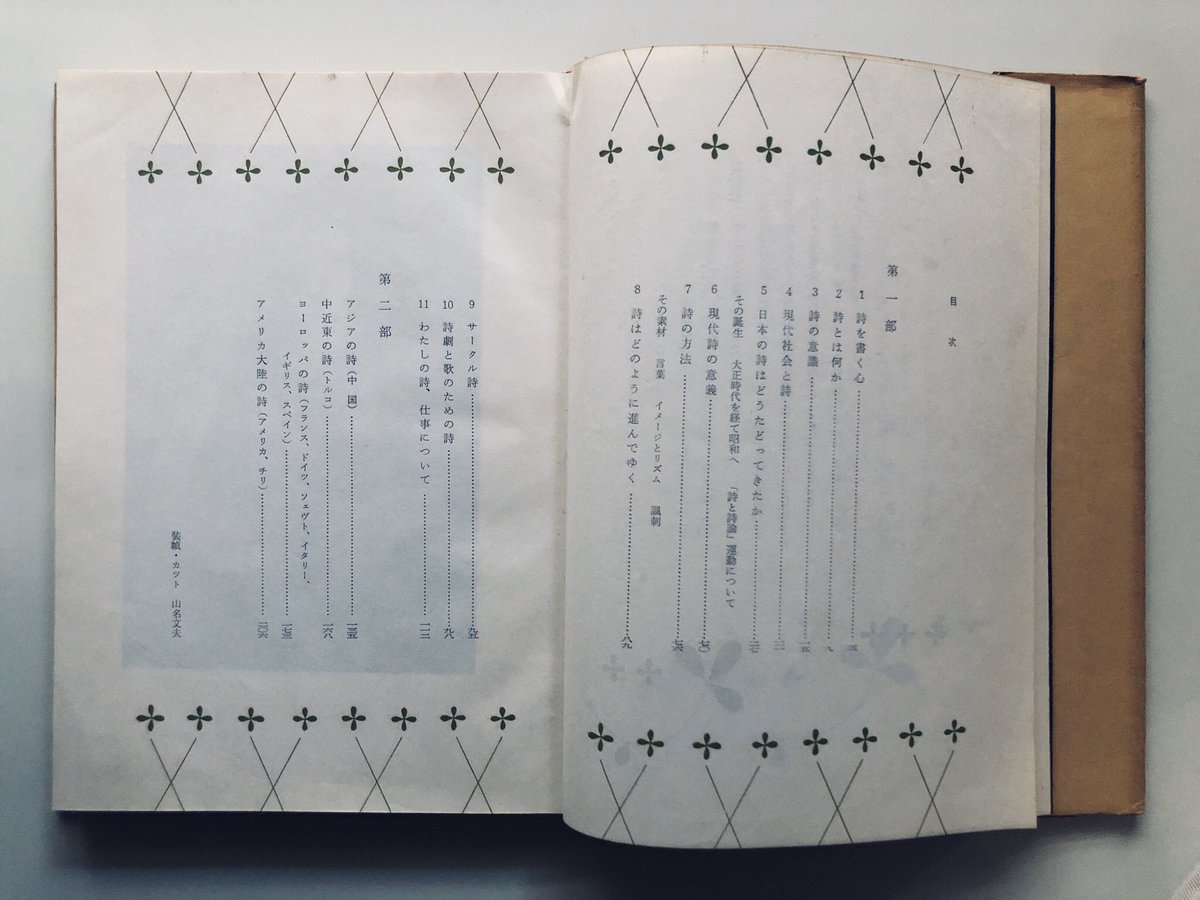 目次
第一部
1 詩を書く心
2 詩とは何か………九
3 詩の意識………一五
4 現代社会と詩
5 日本の詩はどうたどってきたか
その誕生 大正時代を経て昭和へ 「詩と詩論」運動について
6 現代詩の意義
7 詩の方法………七六
その素材 言葉 イメージとリズム 諷刺
8 詩はどのように進んでゆく………八九
9 サークル詩………九五
10 詩劇と歌のための詩………九八
11 わたしの詩、仕事について………一一三
第二部
アジアの詩(中国)………一三五
中近東の詩(トルコ)………一六八
ヨーロッパの詩(フランス、ドイツ、ソェヴト、イタリー、
イギリス、スペイン)………一七三
アメリカ大陸の詩(アメリカ、チリ)………二〇六
装幀・カット 山名文夫